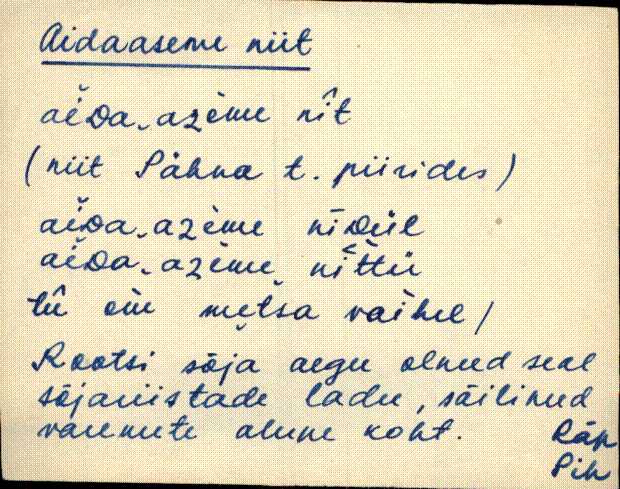 Aidaaseme niit
aĕDa‿azème nît
(niit Pähna t. piirides)
aĕDa‿azème niDül
aĕDa‿azème nittü
tü om metsa vaihel/
Rootsi sõja aegu olnud seal
sõjariistade ladu, säilinud
varemete alune koht.
Räp
Pih